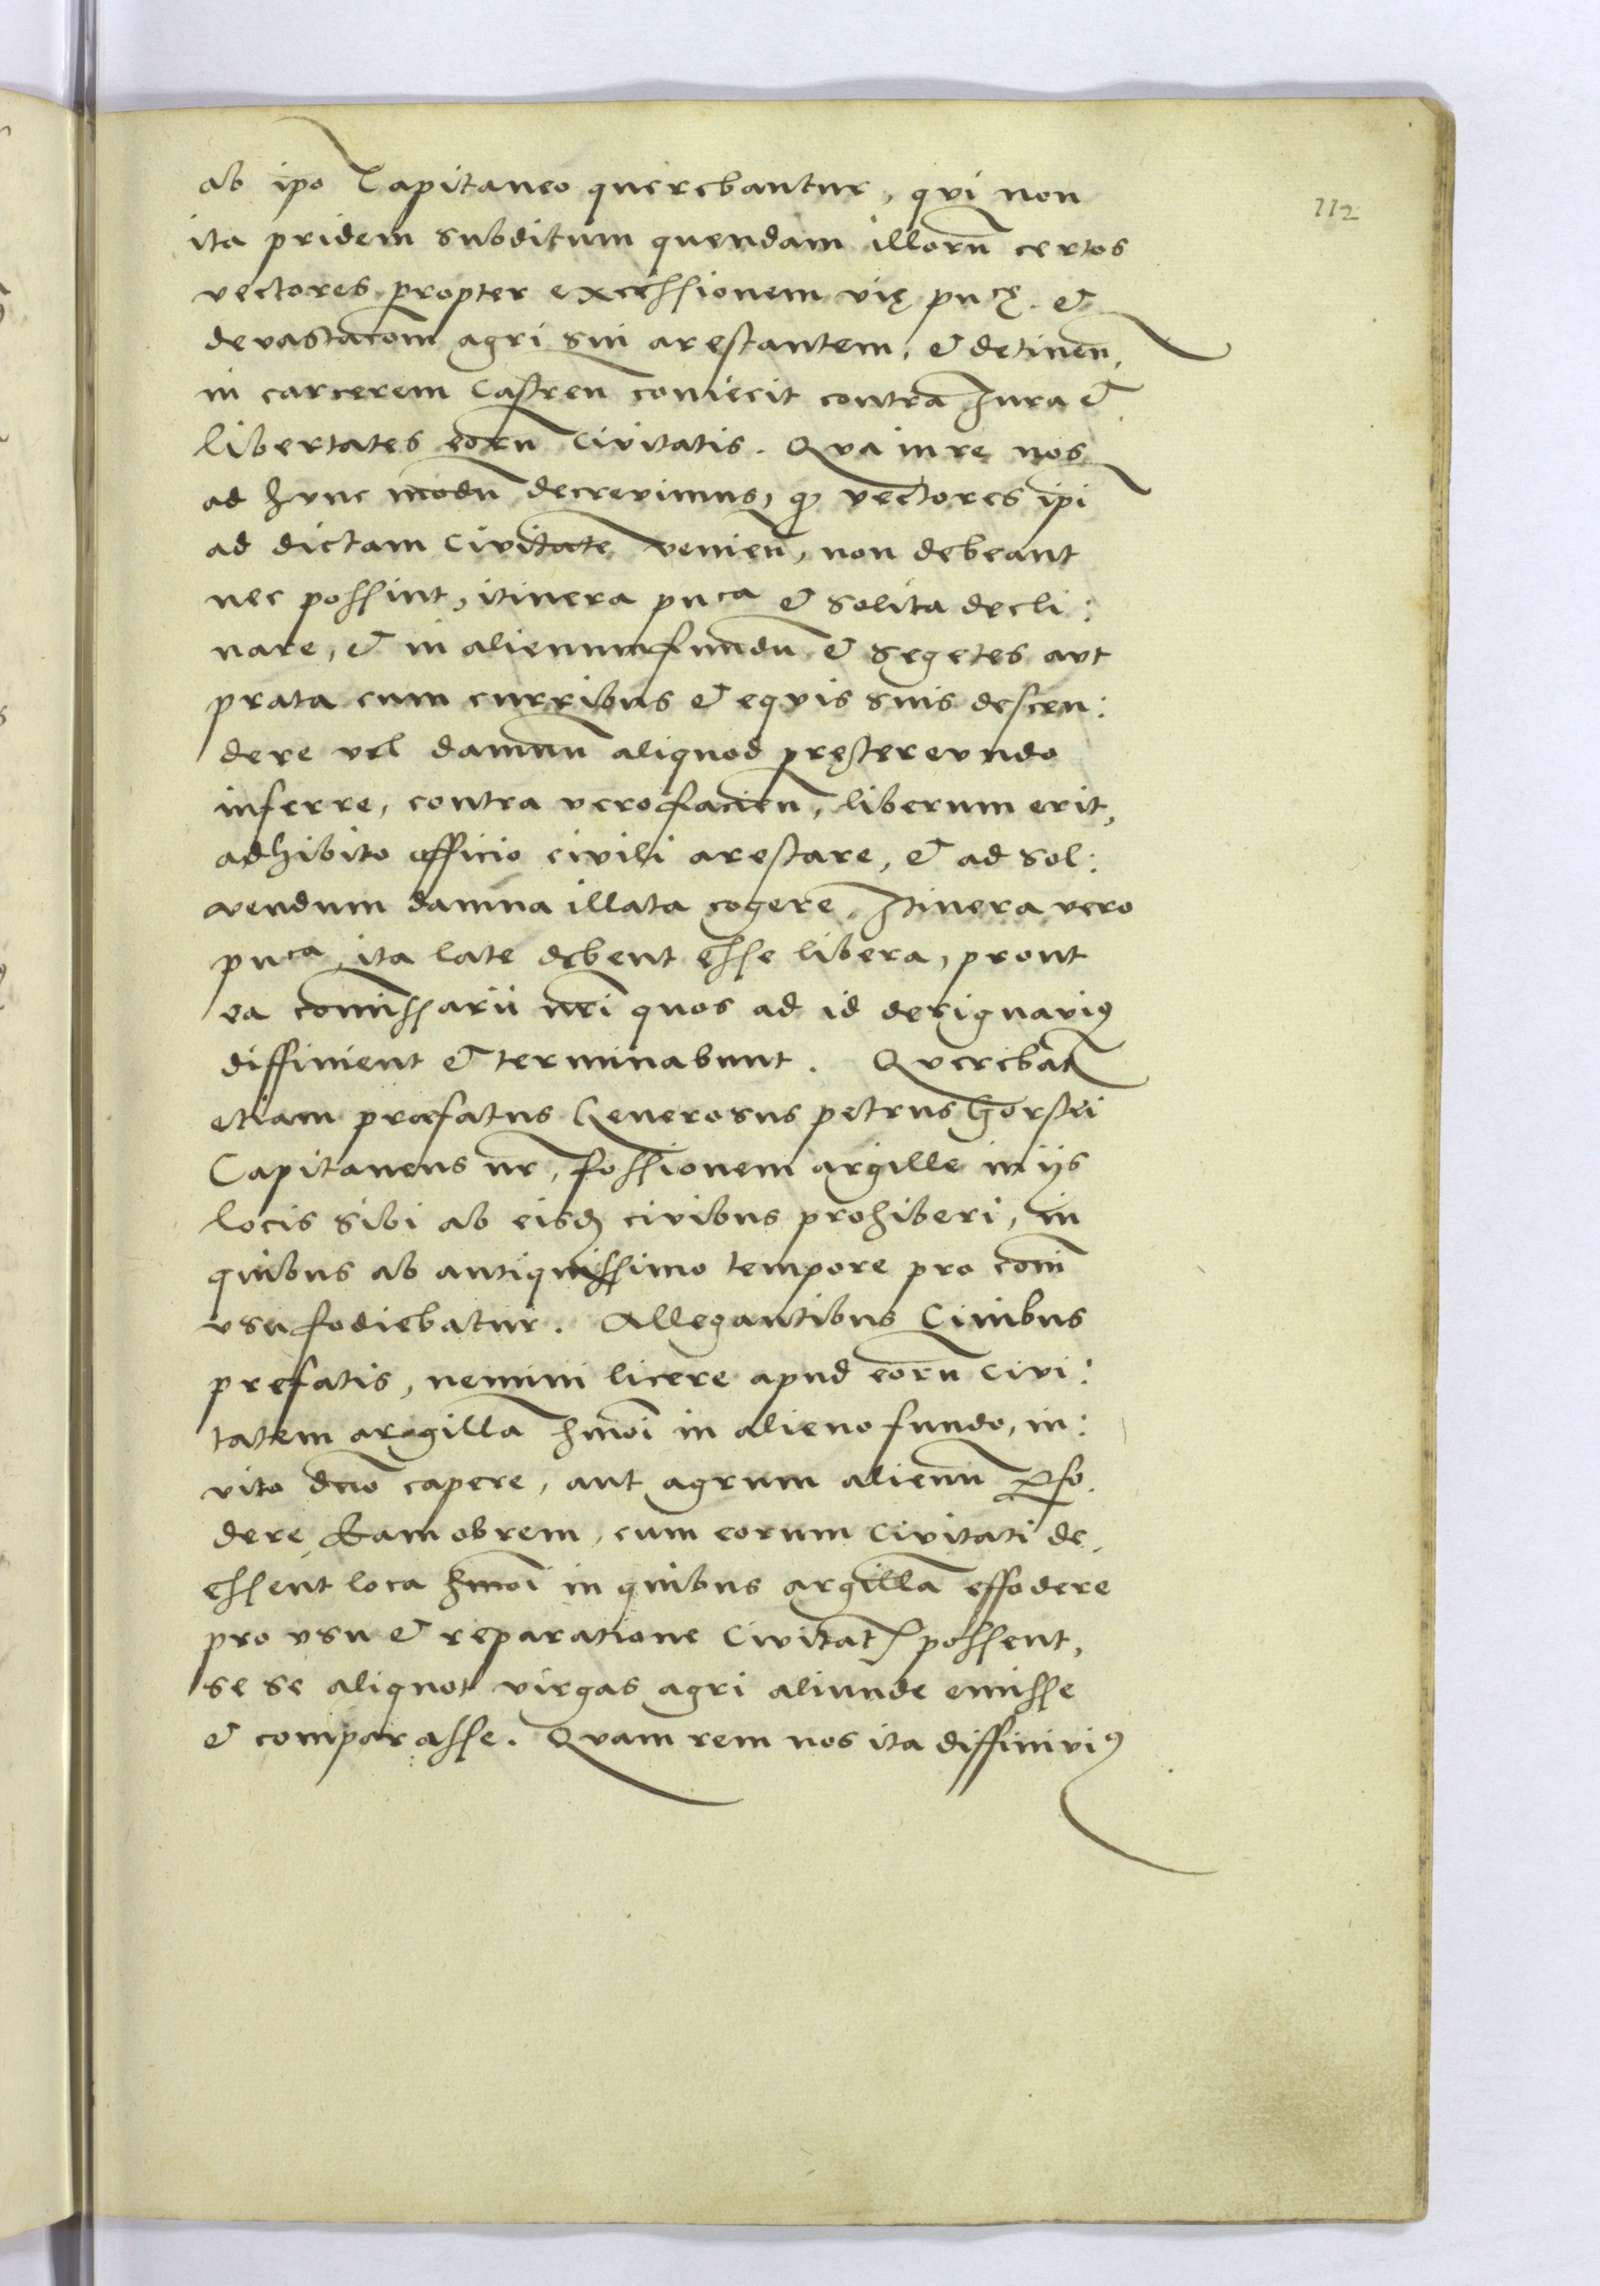 112
ab ipo Capitaneo querebantur, qui non
ita pridem subditum quendam illorū certos
vectores propter excessionem vię pucę. &
devastacōm agri sui arestantem, & detineñ,
in carcerem Castreñ coniecit contra Iura &
libertates eorū Civitatis. Qva in re nos
ad hvnc modū decrevimus, qꝫ vectores ipi
ad dictam Civitatē venieñ, non debeant
nec possint, itinera puca & solita decli:
nare, & in alienum fundū & segetes avt
prata cum curribus & eqvis suis descen:
dere vel damnū aliquod pręterevndo
inferre, contra vero facieñ, liberum erit,
adhibito officio civili arestare, & ad sol:
vendum damna illata cogere. Itinera vero
puca ita late debent esse libera, prout
ea comissarii nr̄i quos ad id designaviꝰ
diffinient & terminabunt. Qverebat̄
etiam præfatus Generosus petrus Gorski
Capitaneus nr̄, fossionem argille in iis
locis sibi ab eisdꝫ civibus prohiberi, in
quibus ab antiquissimo tempore pro com̄i
vsu fodiebatur. Allegantibus Civibus
prefatis, nemini licere apud eorū Civi:
tatem argillā hmōi in alieno fundo, in:
vito dn̄o capere, aut agrum alienū ꝑfo
dere. Eam obrem, cum eorum Civitati de
essent loca hmōi in quibus argillā effodere
pro vsu & reparatione Civitatꝭ possent,
se se aliquot virgas agri aliunde emisse
& comparasse. Qvam rem nos ita diffiniviꝰ